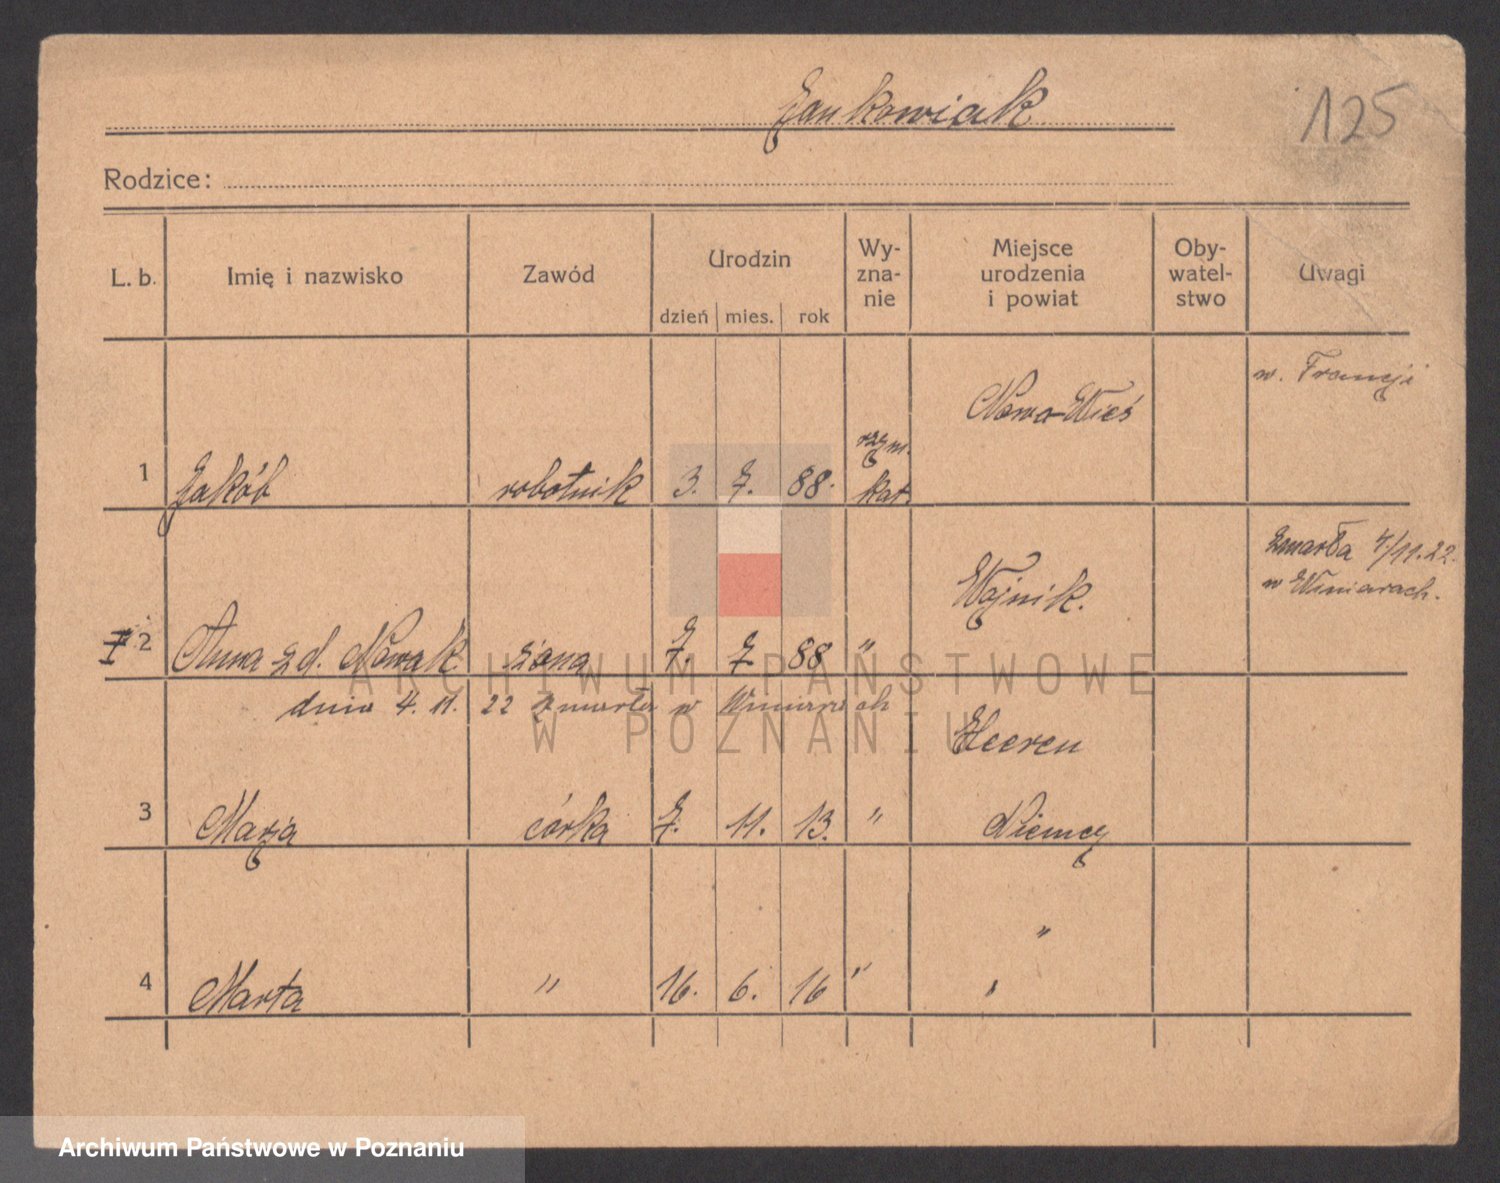 Jankowiak
125
Rodzice:
L. b. Imię i nazwisko Zawód Urodzin dzień mies. rok Wy-zna-nie Miejsce urodzenia i powiat Oby-watel-stwo Uwagi
w. Francji
Nowa-Wieś
rzym.
1 Jakób robotnik 3. 7. 88. kat.
zmarła 4/11.22.
w Winiarach.
Wojnik.
I 2 Anna z d. Nowak żona 7. 7. 88 "
dnia 4. 11. 22 zmarła w Winiarach
Heeren
3 Marja córka 7. 11. 13. " Niemcy
"
4 Marta " 16. 6. 16 " "
ARCHIWUM PAŃSTWOWE
W POZNANIU
Archiwum Państwowe w Poznaniu